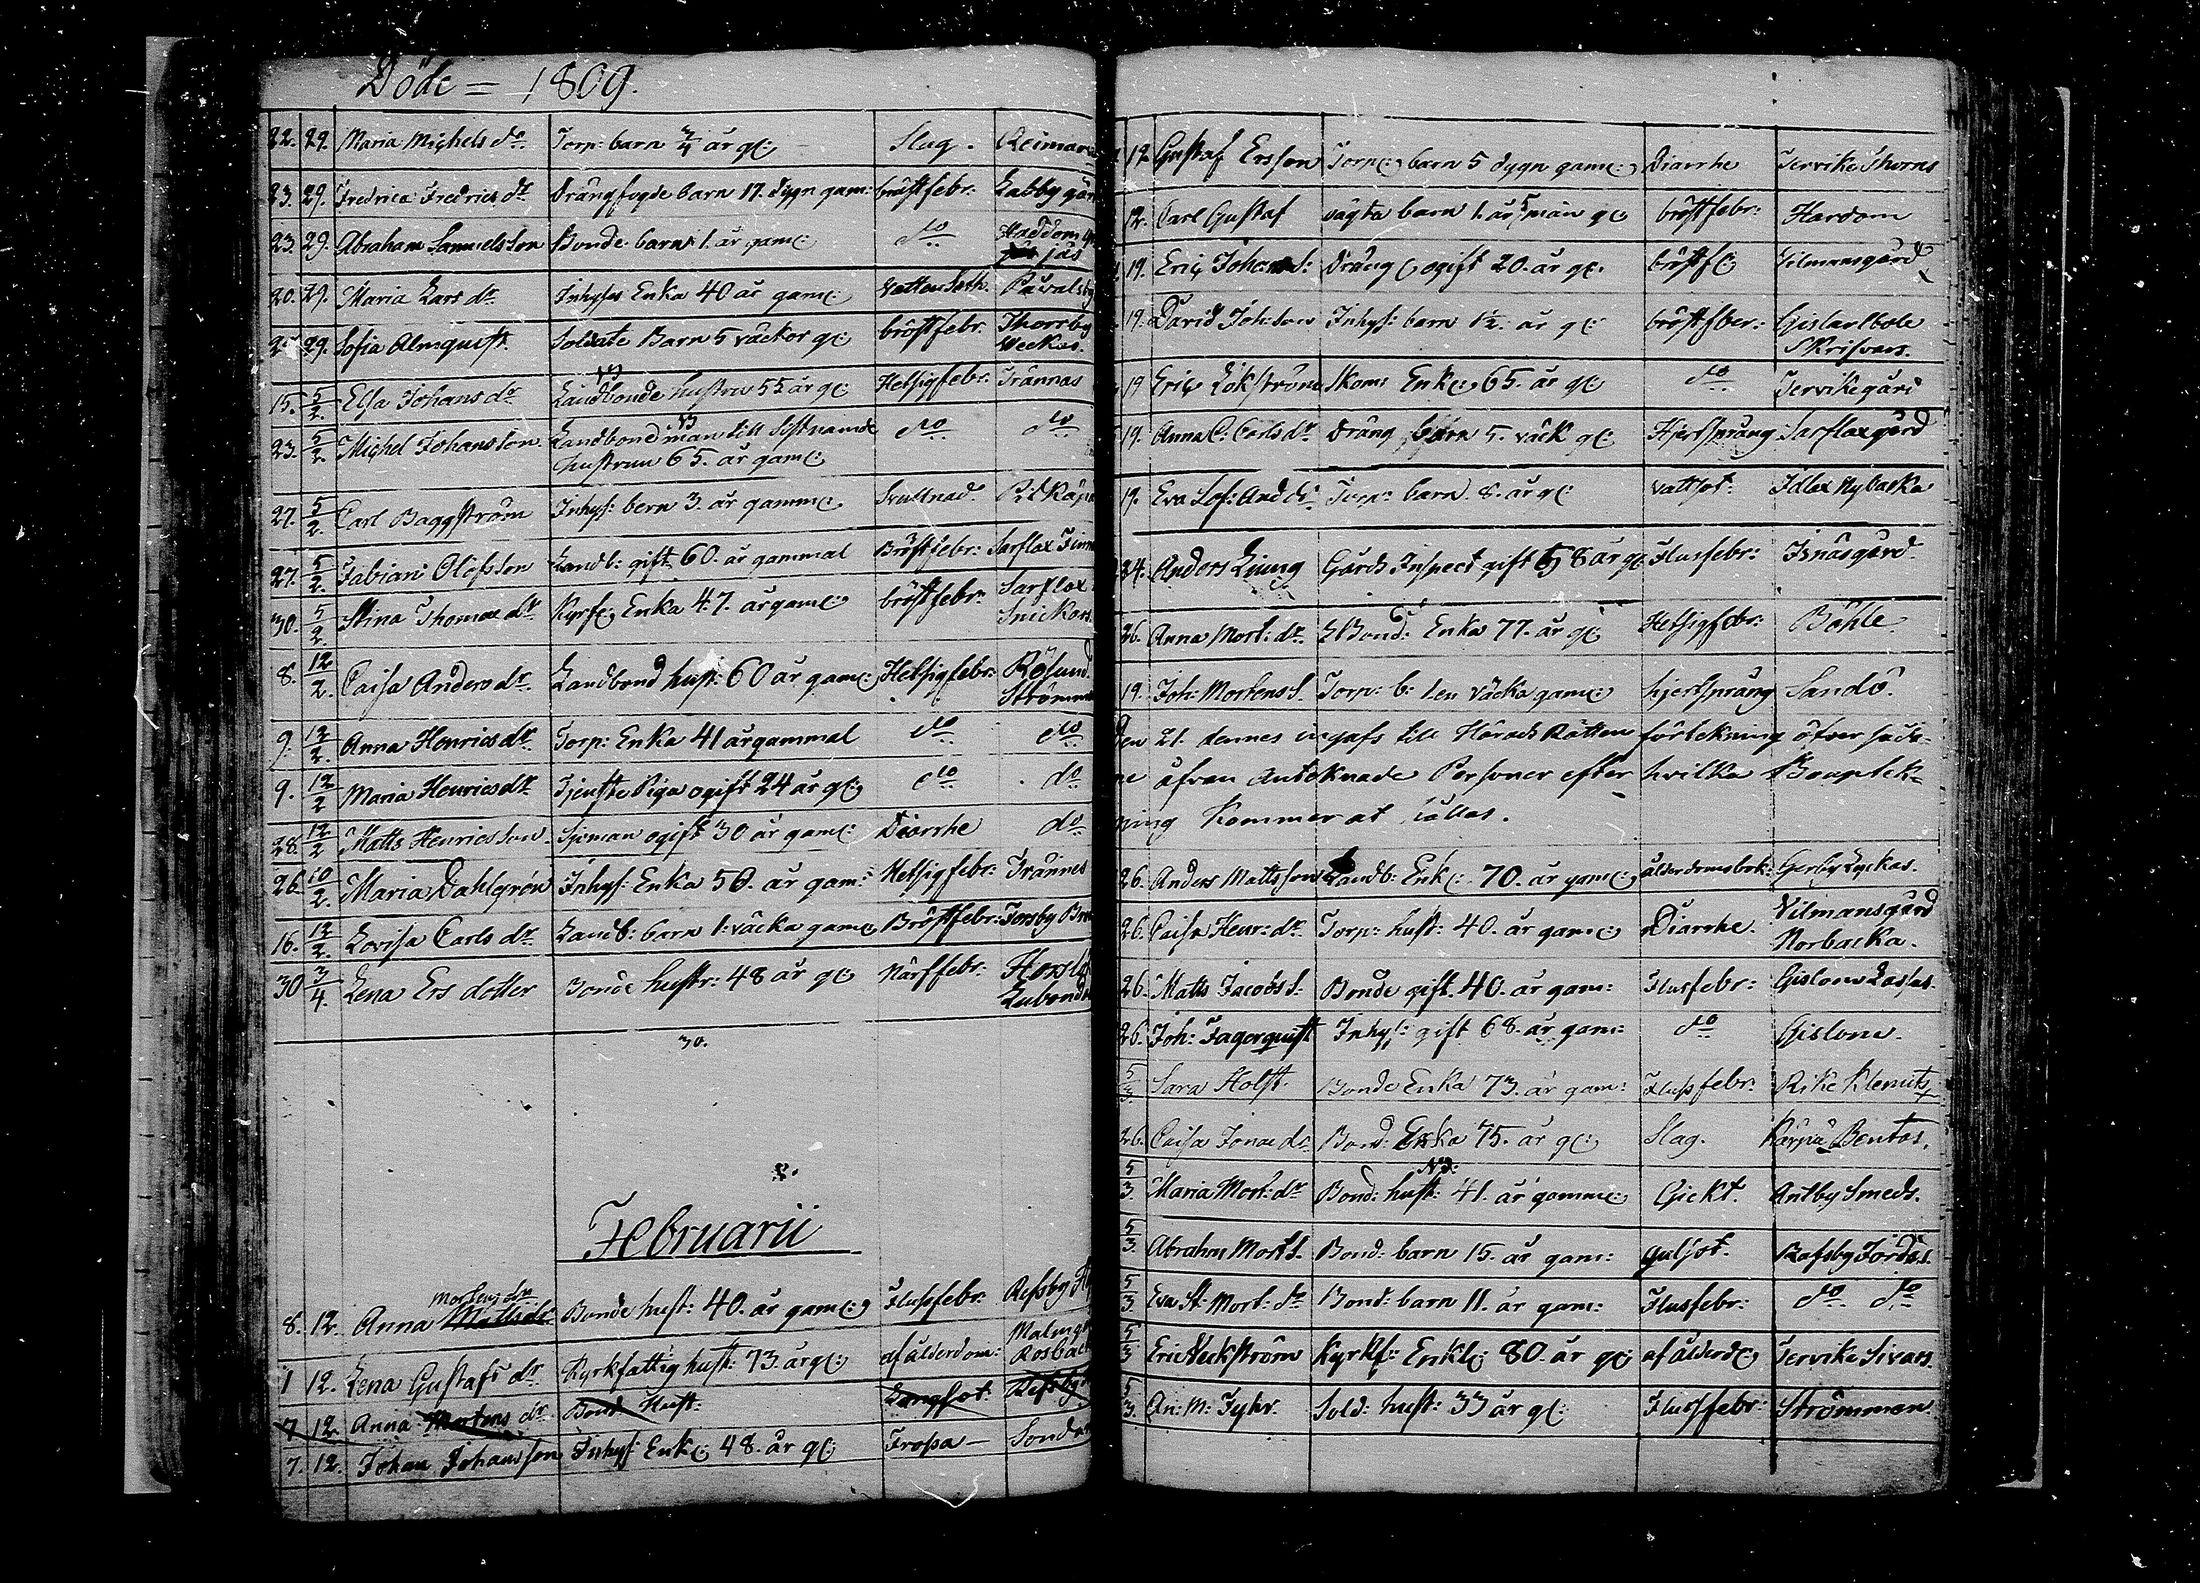 Döde = 1809.
22. 29. Maria Michels dr. Torp: barn 3/4 år gl: Slag. Reimars
23. 29. Fredrica Fredrics dr Drängfogde barn 17. dygn gam: bröstfebr: Labby går
23. 29. Abraham Samuelsson Bonde barn 1. år gam: do Haddom
jås
20. 29. Maria Lars dr. Inhyses Enka 40 år gam: Vatten Soth. Påvalsby
27. 29. Sofia Almquist. Soldate Barn 5 väckor gl: bröstfebr: Thorrby
Veckas.
15. 5/2. Elsa Johans dr Landbonde hustru 55 år gl: Hetsigfebr: Trännas
23. 5/2. Michel Johansson. Landbond man till Sistnamde do do
hustrun 65. år gam:
27. 5/2. Carl Baggström Inhys: bern 3. år gamm: Svullnad.
27. 5/2. Fabian Olofsson Landb: gift 60. år gammal Bröstfebr: Sarflax
30. 5/2 Stina Thomæ dr Kyrf: Enka 47. år gam: bröstfebr: Sarflax
Snickars
8. 12/2. Caisa Anders dr. Landbond hust: 60 år gam: Hetsigfebr: Rösund.
Strömm
9. 12/2. Anna Henrics dr. Torp: Enka 41 år gammal do do
9. 12/2 Maria Henrics dr. Tjenste Piga ogift 24 år gl: do do
28. 12/2 Matts Henricsson Sjöman ogift 30 år gam: Diarrhe do
26. 10/2. Maria Dahlgrén Inhys: Enka 50. år gam: Hetsigfebr: Trännes
16. 12/2. Lovisa Carls dr. Landb: barn 1: väcka gam: Bröstfebr: Isnsby
30 3/4. Lena Ers dotter Bonde hustr: 48 år gl: Närffebr:
30.
Februarii
Mortens dr
8. 12. Anna Matts dr Bonde hust: 40. år gam: Flussfebr: Resby
1 12. Lena Gustafs dr. Kyrkfattig hust: 73. år gl: af ålderdom: Malmgå
Rosback
7 12. Anna Mortens dr. Bond: Hust: Lungsot: Resby
7. 12. Johan Johansson Inhys: Enkl: 48. år gl: Frossa — Sond
12. Gustaf Ersson Torp: barn 5 dygn gam: Diarrhe Tervike Thorns
12. Carl Gustaf oägta barn 1. år 5 mån gl: bröstfebr: Hardom
19. Eric Johans S: Dräng ogift 20. år gl: bröstf: Vilmansgård
19. David Joh:son Inhys: barn 1½. år gl: bröstfber: Gislarlbole
Skrifvars.
19 Eric Lökström Skom: Enkl: 65. år gl: do Tervikegård
19. Anna C: Carls dr. Dräng barn 5. väck gl: Hjertsprång Sarflaxgård
19. Eva Sof: And dr. Torp: barn. 8. år gl: vattsot: Idlax Nybacka
24. Anders Liung Gårds Inspect gift 58 år gl: Flussfebr: Isnäsgård
26. Anna Mort: dr. Bond: Enka 77. år gl: Hetsigfebr: Böhle
19. Joh: Mortens S. Torp: b: 1 en väcka gam: hjertsprång Sandö.
Den 21. dennes ingafs till Härads Rätten förtekning öfver sada-
ne äfvan Anteknade Personer efter hvilka Bouptek-
ning Kommer at hållas.
26. Anders Mattsson Landb: Enkl: 70. år gam: ålderdomsbrek: Gerby Lyckas.
26. Caisa Henr: dr. Torp: hust: 40. år gam: Diarrhe. Vilmansgård
Norbacka.
26. Matts Jacobs S. Bonde gift. 40. år gam: Flusfebr: Gislom Lassas.
26. Joh: Fagerquist Inhys: gift 68. år gam: do Gislom.
5/3. Sara Holst. Bonde Enka 73. år gam: Flussfebr: Rike Klemets
26. Caisa Jonæ dr Bond: Enka 75. år gl: Slag. Kärpä Bentas.
NB:
5/3. Maria Mort: dr Bond: hust: 41. år gamm: Gickt. Antby Smeds.
5/3. Abraham Mort S. Bond: barn 15. år gam: gulsot. Rafsby Jordas
5/3. Eva St: Mort: dr Bond: barn 11. år gam: Flusfebr: do do
5/3 Eric Veckström Kyrkf: Enkl: 80. år gl: af ålderd: Tervike Sivars.
5/3. An: M: Fyhr. Sold: hust: 33 år gl: Flussfebr: Strömmen